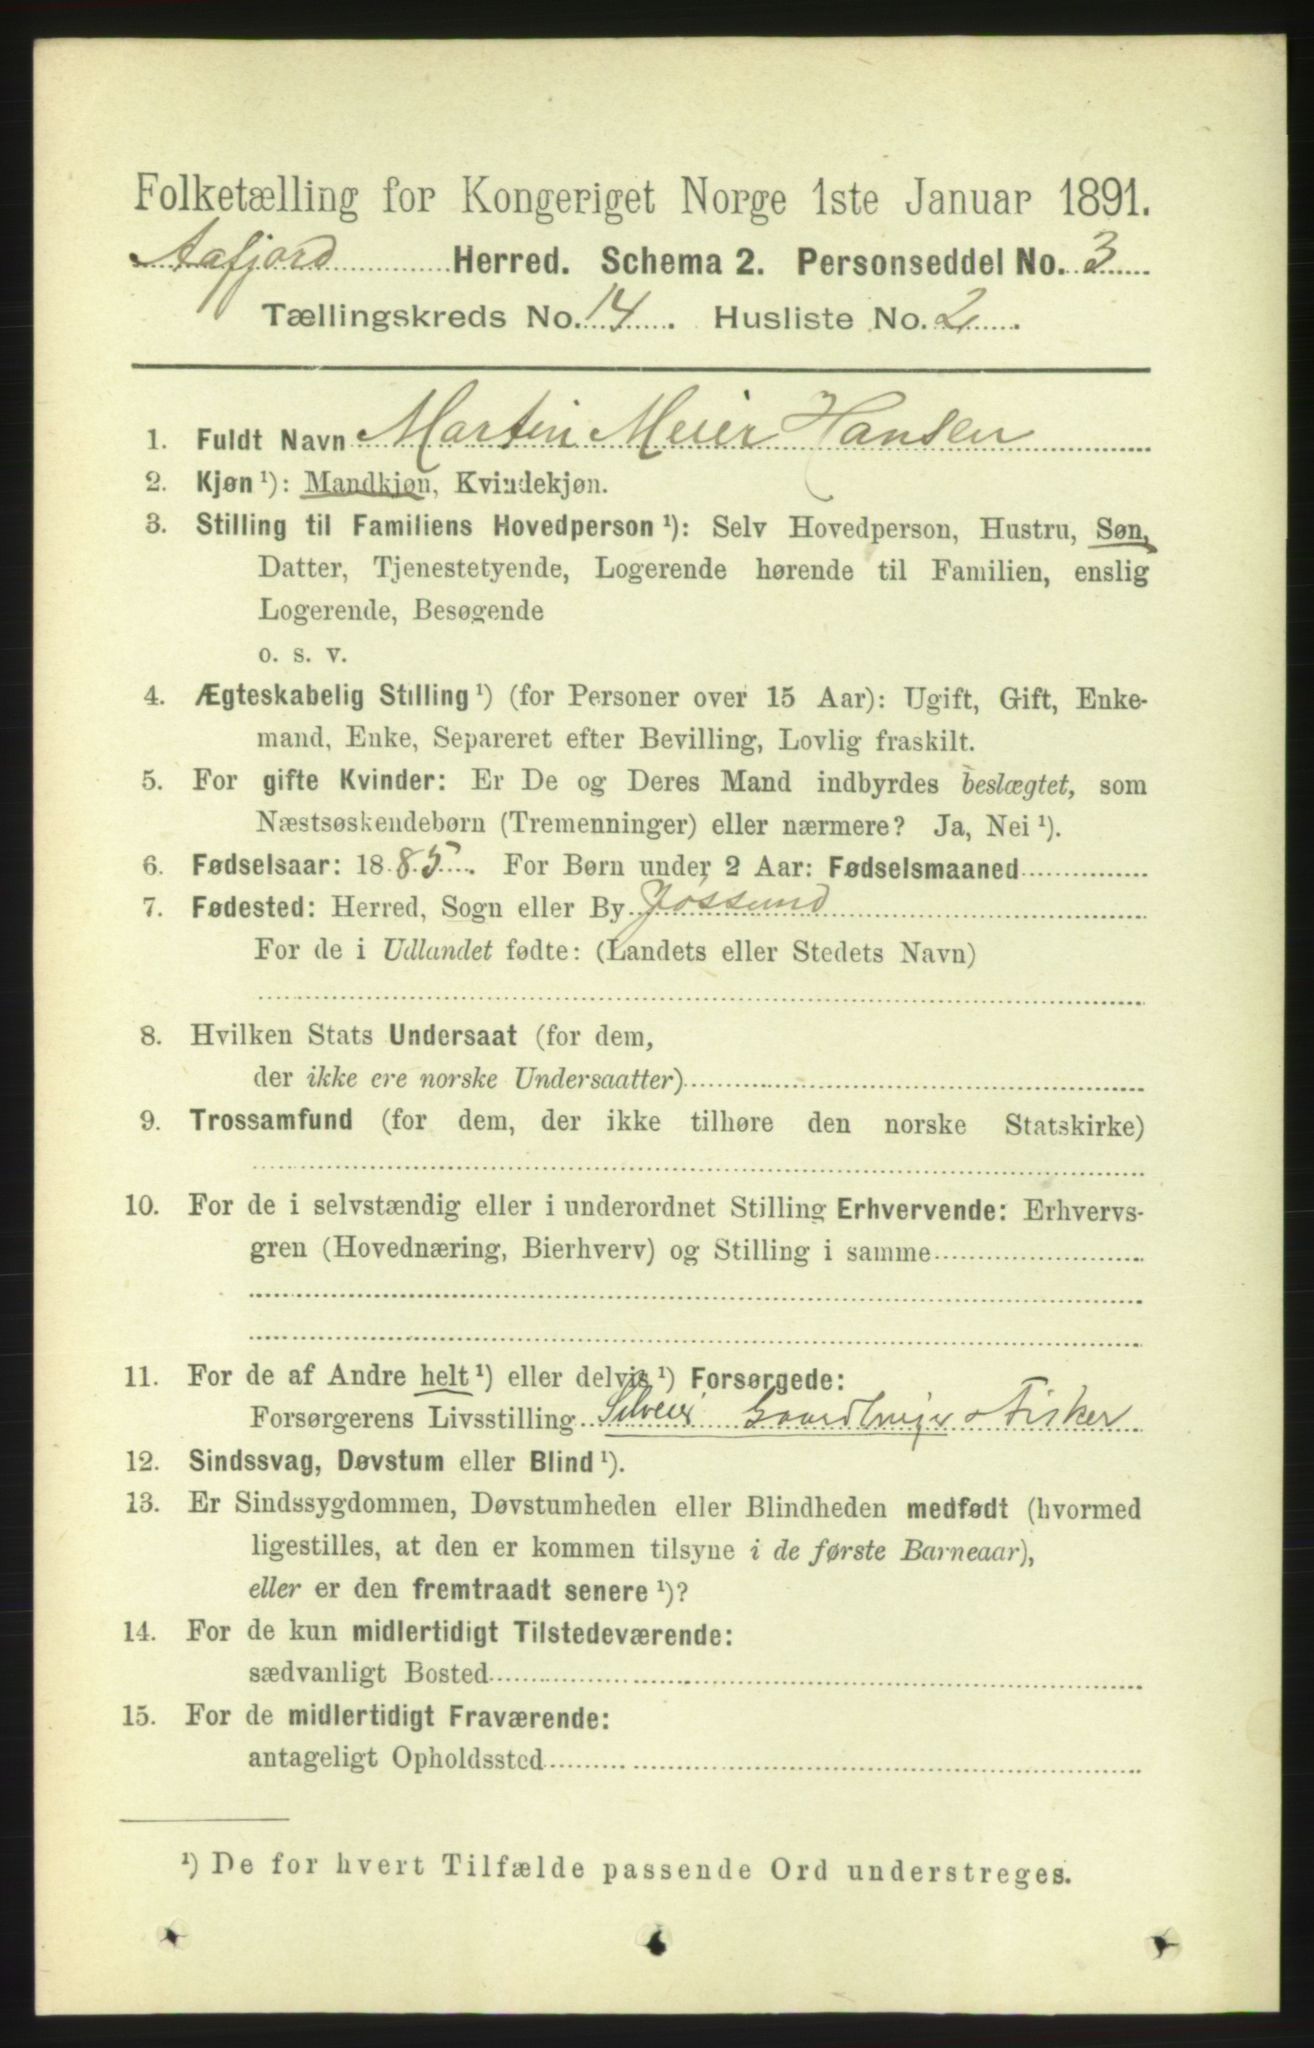 Folketælling for Kongeriget Norge 1ste Januar 1891.
Aafjord Herred. Schema 2. Personseddel No. 3
Tællingskreds No. 14. Husliste No. 2.
1. Fuldt Navn Martin Meier Hansen
2. Kjøn ¹): Mandkjøn, Kvindekjøn.
3. Stilling til Familiens Hovedperson ¹): Selv Hovedperson, Hustru, Søn,
Datter, Tjenestetyende, Logerende hørende til Familien, enslig
Logerende, Besøgende
o. s. v.
4. Ægteskabelig Stilling ¹) (for Personer over 15 Aar): Ugift, Gift, Enke-
mand, Enke, Separeret efter Bevilling, Lovlig fraskilt.
5. For gifte Kvinder: Er De og Deres Mand indbyrdes beslægtet, som
Næstsøskendebørn (Tremenninger) eller nærmere? Ja, Nei ¹).
6. Fødselsaar: 1885. For Børn under 2 Aar: Fødselsmaaned
7. Fødested: Herred, Sogn eller By Jøssund
For de i Udlandet fødte: (Landets eller Stedets Navn)
8. Hvilken Stats Undersaat (for dem,
der ikke ere norske Undersaatter)
9. Trossamfund (for dem, der ikke tilhøre den norske Statskirke)
10. For de i selvstændig eller i underordnet Stilling Erhvervende: Erhvervs-
gren (Hovednæring, Bierhverv) og Stilling i samme
11. For de af Andre helt ¹) eller delvis ¹) Forsørgede:
Forsørgerens Livsstilling Selveier Gaardbruger & Fisker
12. Sindssvag, Døvstum eller Blind ¹).
13. Er Sindssygdommen, Døvstumheden eller Blindheden medfødt (hvormed
ligestilles, at den er kommen tilsyne i de første Barneaar),
eller er den fremtraadt senere ¹)?
14. For de kun midlertidigt Tilstedeværende:
sædvanligt Bosted
15. For de midlertidigt Fraværende:
antageligt Opholdssted
¹) De for hvert Tilfælde passende Ord understreges.